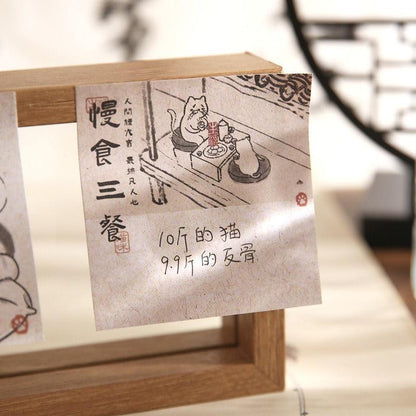 慢食三餐
人間煙火客
最撫凡人心
10斤的猫
9.9斤的反骨